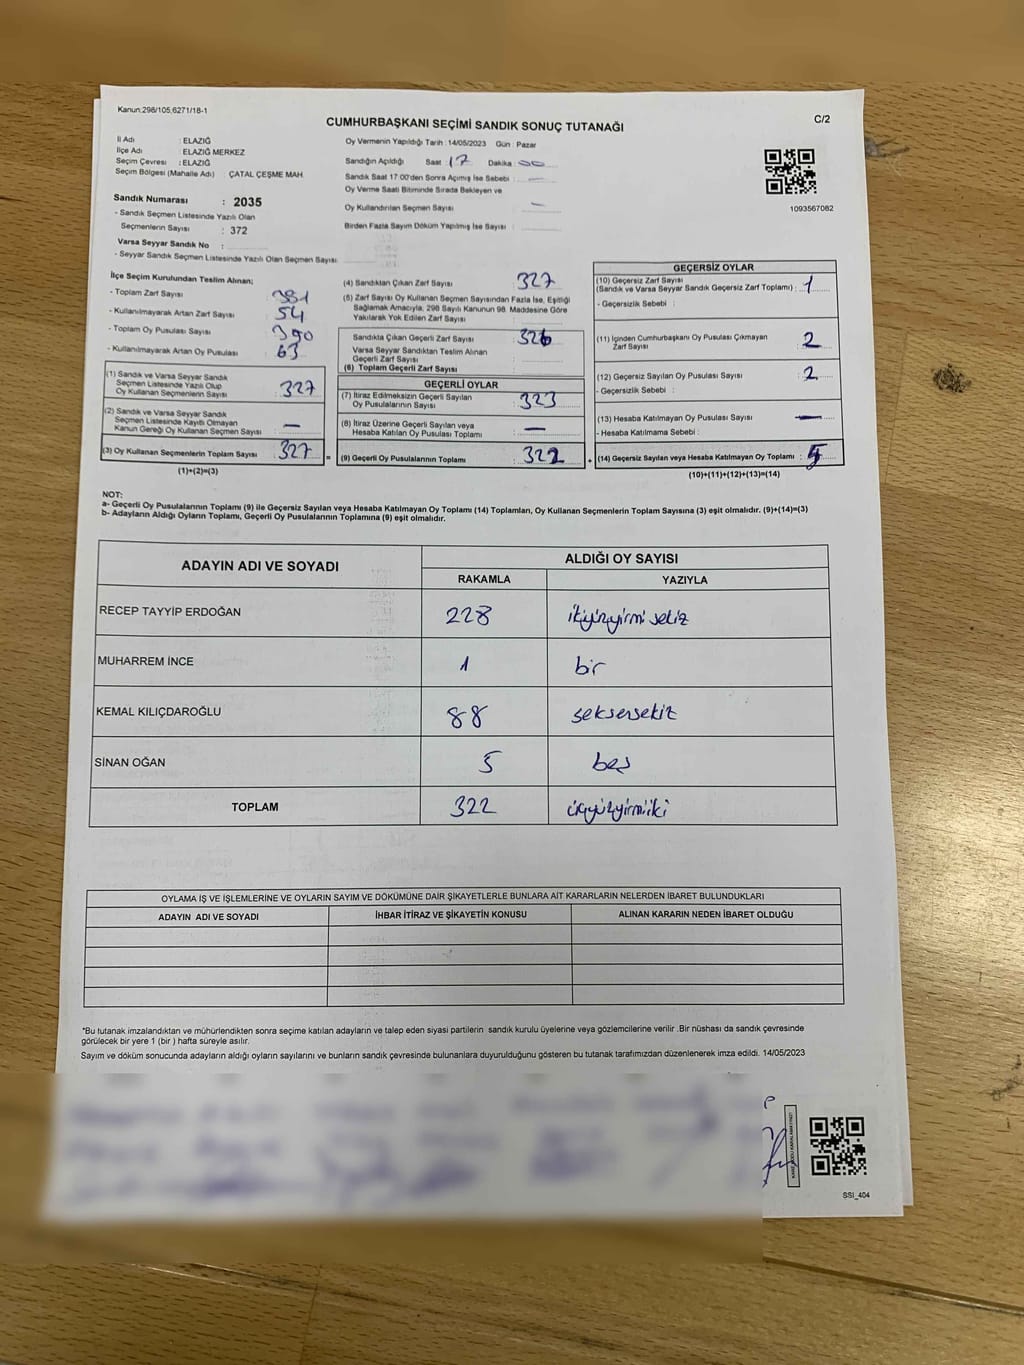 Kanun:298/105,6271/18-1
C/2
CUMHURBAŞKANI SEÇİMİ SANDIK SONUÇ TUTANAĞI
İl Adı : ELAZIĞ
İlçe Adı : ELAZIĞ MERKEZ
Seçim Çevresi : ELAZIĞ
Seçim Bölgesi (Mahalle Adı) : ÇATAL ÇEŞME MAH.
Sandık Numarası : 2035
- Sandık Seçmen Listesinde Yazılı Olan
Seçmenlerin Sayısı : 372
Varsa Seyyar Sandık No :
- Seyyar Sandık Seçmen Listesinde Yazılı Olan Seçmen Sayısı
Oy Vermenin Yapıldığı Tarih : 14/05/2023 Gün : Pazar
Sandığın Açıldığı Saat : 17 Dakika : 00
Sandık Saat 17:00'den Sonra Açımış İse Sebebi : —
Oy Verme Saati Bitiminde Sırada Bekleyen ve
Oy Kullandırılan Seçmen Sayısı : —
Birden Fazla Sayım Döküm Yapılmış İse Sayısı :
1093567082
İlçe Seçim Kurulundan Teslim Alınan;
- Toplam Zarf Sayısı : 381
- Kullanılmayarak Artan Zarf Sayısı : 54
- Toplam Oy Pusulası Sayısı : 390
- Kullanılmayarak Artan Oy Pusulası : 63
(1) Sandık ve Varsa Seyyar Sandık
Seçmen Listesinde Yazılı Olup
Oy Kullanan Seçmenlerin Sayısı : 327
(2) Sandık ve Varsa Seyyar Sandık
Seçmen Listesinde Kayıtlı Olmayan
Kanun Gereği Oy Kullanan Seçmen Sayısı : —
(3) Oy Kullanan Seçmenlerin Toplam Sayısı : 327
(1)+(2)=(3)
(4) Sandıktan Çıkan Zarf Sayısı : 327
(5) Zarf Sayısı Oy Kullanan Seçmen Sayısından Fazla İse, Eşitliği
Sağlamak Amacıyla, 298 Sayılı Kanunun 98. Maddesine Göre
Yakılarak Yok Edilen Zarf Sayısı :
Sandıkta Çıkan Geçerli Zarf Sayısı : 326
Varsa Seyyar Sandıktan Teslim Alınan
Geçerli Zarf Sayısı :
(6) Toplam Geçerli Zarf Sayısı :
GEÇERLİ OYLAR
(7) İtiraz Edilmeksizin Geçerli Sayılan
Oy Pusulalarının Sayısı : 323
(8) İtiraz Üzerine Geçerli Sayılan veya
Hesaba Katılan Oy Pusulası Toplamı : —
(9) Geçerli Oy Pusulalarının Toplamı : 322
=
+
GEÇERSİZ OYLAR
(10) Geçersiz Zarf Sayısı
(Sandık ve Varsa Seyyar Sandık Geçersiz Zarf Toplamı) : 1
- Geçersizlik Sebebi :
(11) İçinden Cumhurbaşkanı Oy Pusulası Çıkmayan
Zarf Sayısı : 2
(12) Geçersiz Sayılan Oy Pusulası Sayısı : 2
- Geçersizlik Sebebi :
(13) Hesaba Katılmayan Oy Pusulası Sayısı : —
- Hesaba Katılmama Sebebi :
(14) Geçersiz Sayılan veya Hesaba Katılmayan Oy Toplamı : 5
(10)+(11)+(12)+(13)=(14)
NOT:
a- Geçerli Oy Pusulalarının Toplamı (9) ile Geçersiz Sayılan veya Hesaba Katılmayan Oy Toplamı (14) Toplamları, Oy Kullanan Seçmenlerin Toplam Sayısına (3) eşit olmalıdır. (9)+(14)=(3)
b- Adayların Aldığı Oyların Toplamı, Geçerli Oy Pusulalarının Toplamına (9) eşit olmalıdır.
ADAYIN ADI VE SOYADI
ALDIĞI OY SAYISI
RAKAMLA YAZIYLA
RECEP TAYYİP ERDOĞAN 228 ikiyüzyirmi sekiz
MUHARREM İNCE 1 bir
KEMAL KILIÇDAROĞLU 88 seksensekiz
SİNAN OĞAN 5 beş
TOPLAM 322 üçyüzyirmiiki
OYLAMA İŞ VE İŞLEMLERİNE VE OYLARIN SAYIM VE DÖKÜMÜNE DAİR ŞİKAYETLERLE BUNLARA AİT KARARLARIN NELERDEN İBARET BULUNDUKLARI
ADAYIN ADI VE SOYADI İHBAR İTİRAZ VE ŞİKAYETİN KONUSU ALINAN KARARIN NEDEN İBARET OLDUĞU
*Bu tutanak imzalandıktan ve mühürlendikten sonra seçime katılan adayların ve talep eden siyasi partilerin sandık kurulu üyelerine veya gözlemcilerine verilir .Bir nüshası da sandık çevresinde
görülecek bir yere 1 (bir ) hafta süreyle asılır.
Sayım ve döküm sonucunda adayların aldığı oyların sayılarını ve bunların sandık çevresinde bulunanlara duyurulduğunu gösteren bu tutanak tarafımızdan düzenlenerek imza edildi. 14/05/2023
SSI_404